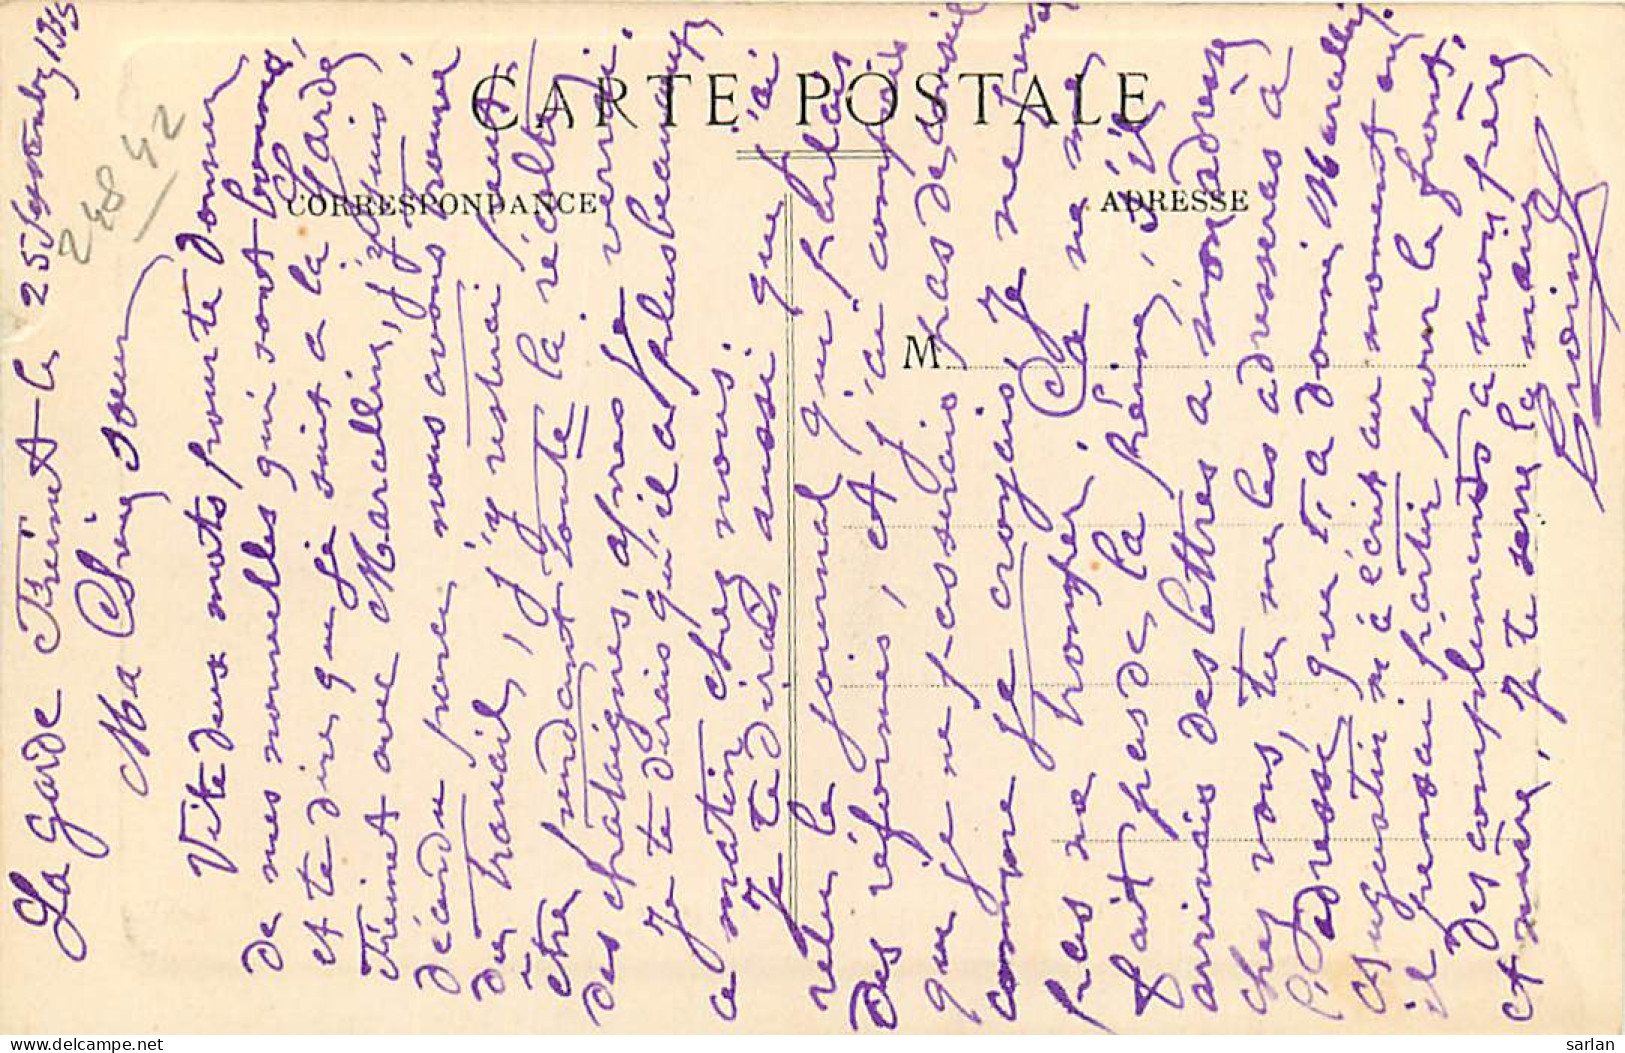 CARTE POSTALE
CORRESPONDANCE
ADRESSE
M
248 42
La Garde Freinet le 25 Septembre 1915
Ma Chère Sœur
Vite deux mots pour te donner
de mes nouvelles qui sont bonnes,
et te dire que je suis a la Garde
Freinet avec Marcellin, j'y suis
décendu parce, nous avons trouver
du travail, j'y restrai peut
être pendant toute la récolte
des chataignes, apres je verrai.
Je te dirais qu'il a plus beaucoup
ce matin chez nous.
Je te dirais aussi que j'ai
relu le journal qui parlais
des réformés, et j'ai compris
que je ne passerais pas de conseil
comme je croyais, Je ne pense
pas me tromper. Ca ne me
fait pas de la peine, s'il
arrivais des lettres a mon adresse
chez vous, tu me les adresseras à
l'adresse, que t'a donné Marcellin.
Augustin m'a écrit au moment où
il pensai partir pour le front.
Des complements a mon père
et mère, Je te serre la main